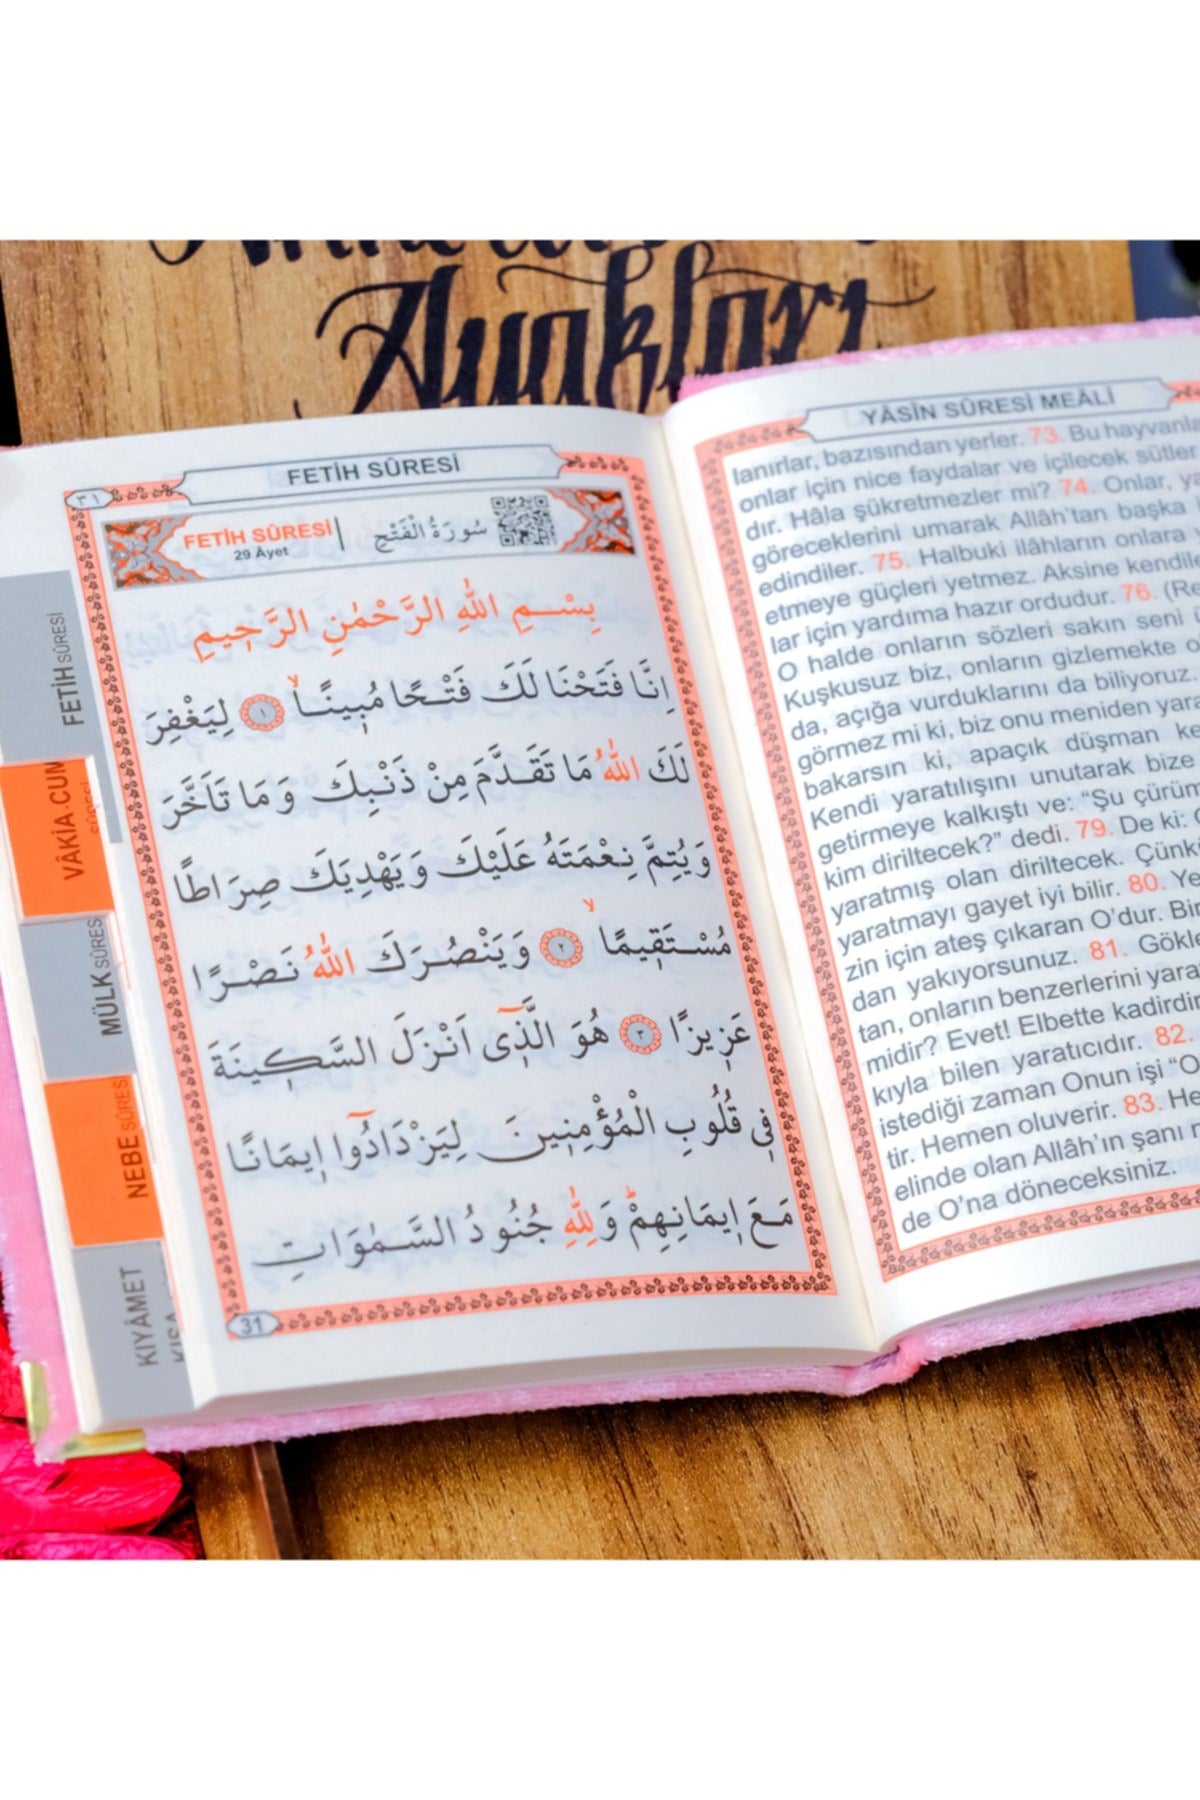 Ayakları
FETİH SÛRESİ
٣١
FETİH SÛRESİ
29 Âyet
سُورَةُ الْفَتْحِ
بِسْمِ اللهِ الرَّحْمٰنِ الرَّح۪يمِ
اِنَّا فَتَحْنَا لَكَ فَتْحًا مُب۪ينًاۙ ﴿١﴾ لِيَغْفِرَ
لَكَ اللهُ مَا تَقَدَّمَ مِنْ ذَنْبِكَ وَمَا تَاَخَّرَ
وَيُتِمَّ نِعْمَتَهُ عَلَيْكَ وَيَهْدِيَكَ صِرَاطًا
مُسْتَق۪يمًاۙ ﴿٢﴾ وَيَنْصُرَكَ اللهُ نَصْرًا
عَز۪يزًا ﴿٣﴾ هُوَ الَّذ۪ٓى اَنْزَلَ السَّك۪ينَةَ
ف۪ى قُلُوبِ الْمُؤْمِن۪ينَ لِيَزْدَادُٓوا ا۪يمَانًا
مَعَ ا۪يمَانِهِمْۜ وَلِلهِ جُنُودُ السَّمٰوَاتِ
31
FETİH SÛRESİ
VÂKİA.CUM
SÛRESİ
MÜLK SÛRES
NEBE SÛRES
KIYÂMET
YÂSÎN SÛRESİ MEÂLİ
lanırlar, bazısından yerler. 73. Bu hayvanla
onlar için nice faydalar ve içilecek sütler
dır. Hâla şükretmezler mi? 74. Onlar, ya
göreceklerini umarak Allâh'tan başka
edindiler. 75. Halbuki ilâhların onlara
etmeye güçleri yetmez. Aksine kendile
lar için yardıma hazır ordudur. 76. (Re
O halde onların sözleri sakın seni
Kuşkusuz biz, onların gizlemekte o
da, açığa vurduklarını da biliyoruz.
görmez mi ki, biz onu meniden yara
bakarsın ki, apaçık düşman ke
Kendi yaratılışını unutarak bize
getirmeye kalkıştı ve: “Şu çürüm
kim diriltecek?” dedi. 79. De ki:
yaratmış olan diriltecek. Çünkü
yaratmayı gayet iyi bilir. 80. Ye
zin için ateş çıkaran O'dur. Bir
dan yakıyorsunuz. 81. Gökle
tan, onların benzerlerini yara
midir? Evet! Elbette kadirdir
kıyla bilen yaratıcıdır. 82.
istediği zaman Onun işi “O
tir. Hemen oluverir. 83. He
elinde olan Allâh'ın şanı
de O'na döneceksiniz.